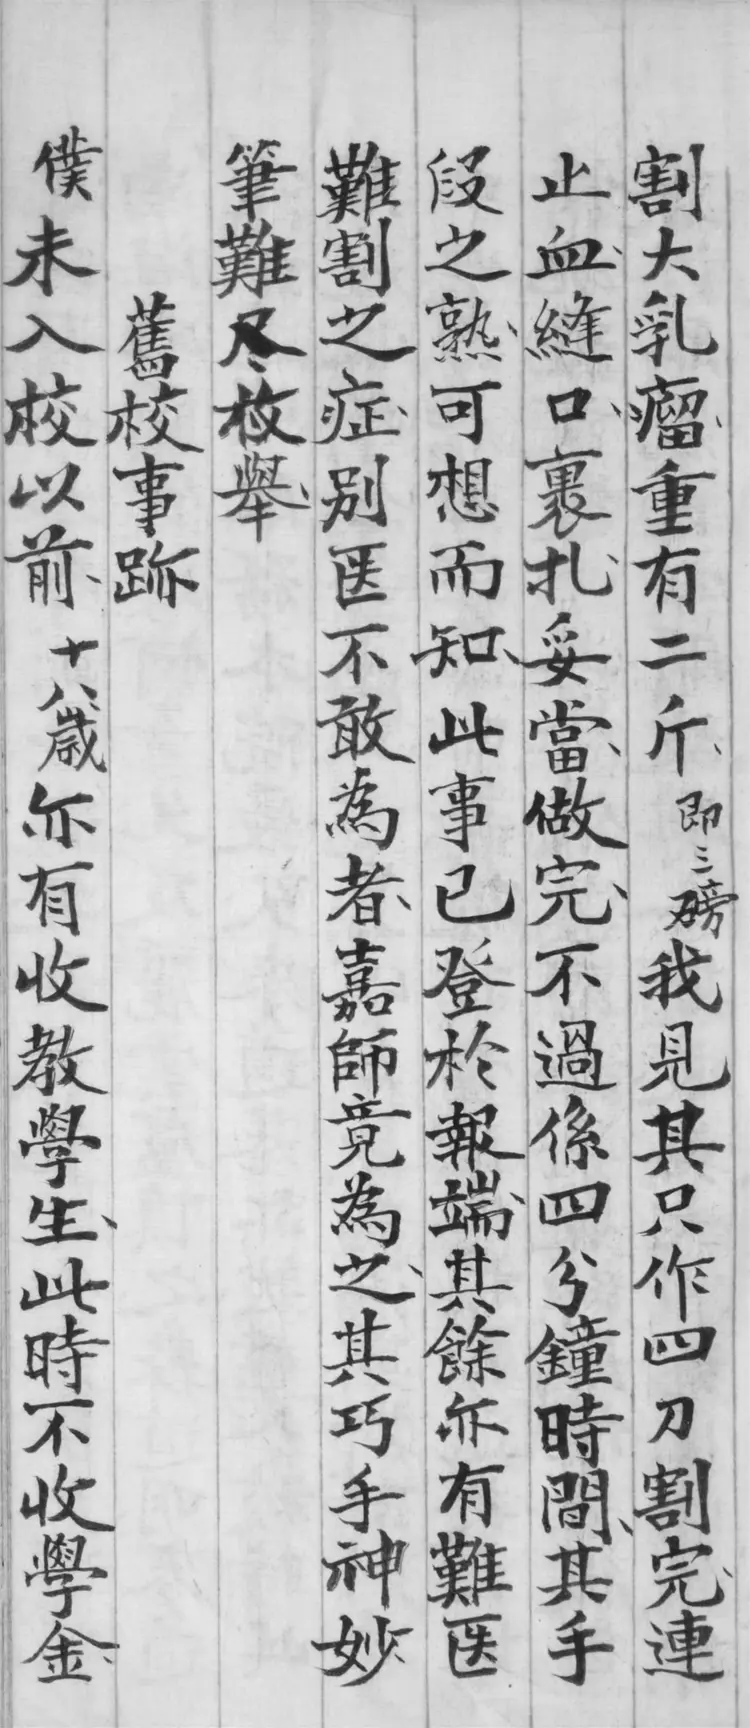 割大乳瘤、重有二斤、即三磅我見其只作四刀割完、連
止血、縫口、裹扎、妥當、做完、不過係四分鐘時間、其手
段之熟、可想而知、此事已登於報端、其餘亦有難医
難割之症、別医不敢為者、嘉師竟為之、其巧手神妙、
筆難尽枚舉、
舊校事跡
僕未入校以前、十八歲亦有收教學生、此時不收學金、